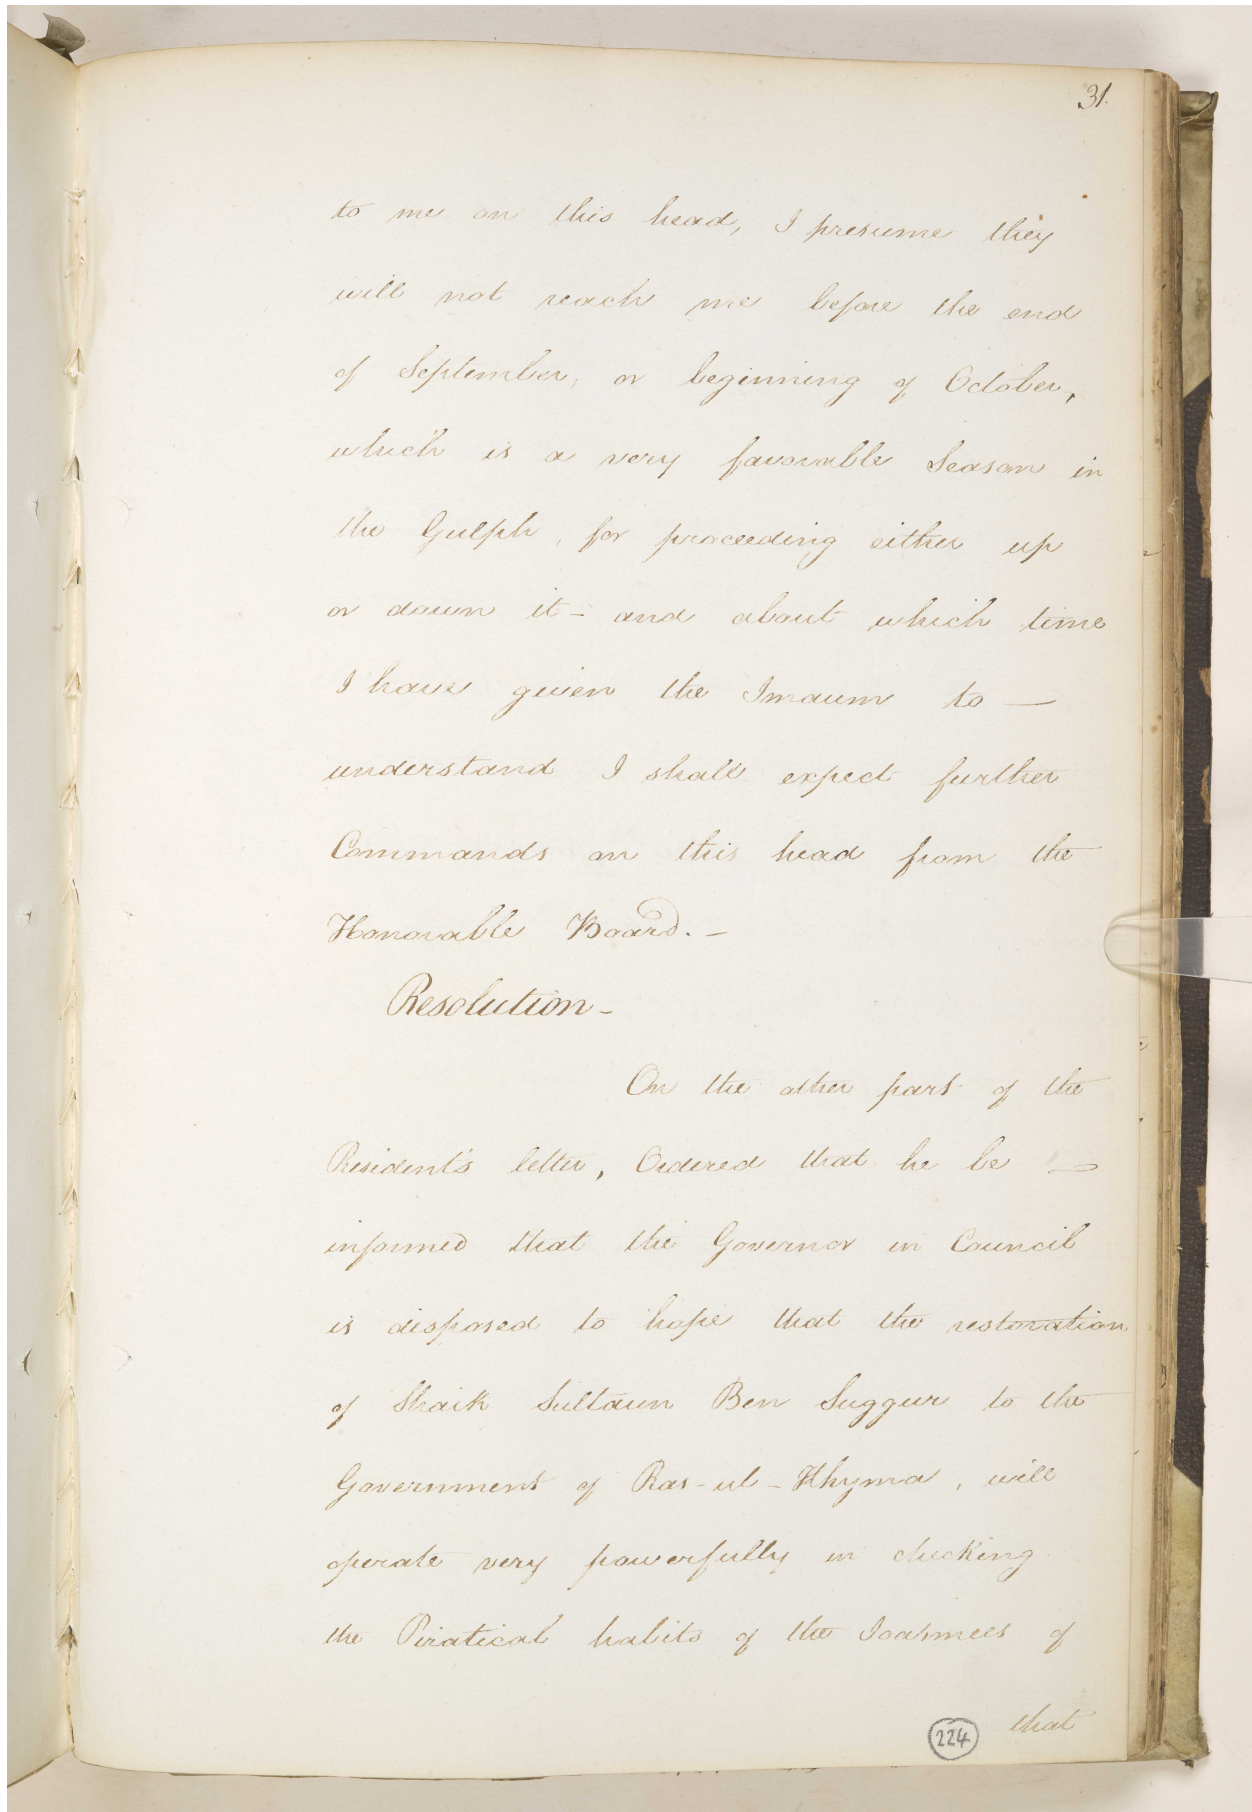 31.
to me on this head, I presume they
will not reach me before the end
of September, or beginning of October,
which is a very favorable Season in
the Gulph, for proceeding either up
or down it - and about which time
I have given the Imaum to —
understand I shall expect further
Commands on this head from the
Honorable Board. -
Resolution -
On the other part of the
Resident's letter, Ordered that he be —
informed that the Governor in Council
is disposed to hope that the restoration
of Shaik Sultaun Ben Suggur to the
Government of Ras-ul-Khyma, will
operate very powerfully in checking
the Piratical habits of the Joasmees of
that
224